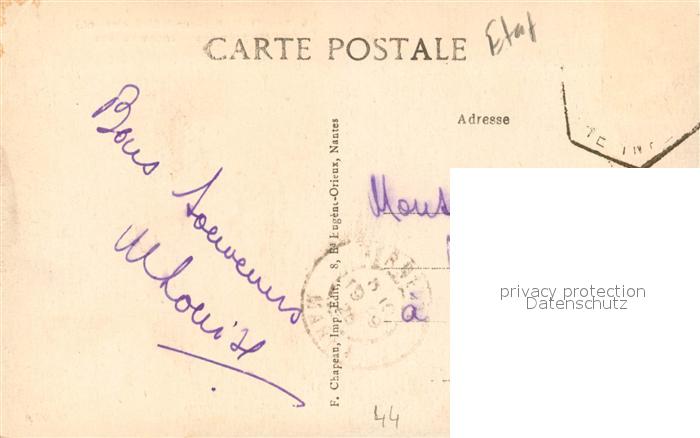 CARTE POSTALE
Etat
Adresse
Bons
Souvenirs
F. Chapeau, Imp.-Edit., 8, Bd Eugène-Orieux, Nantes
à
privacy protection
Datenschutz
44